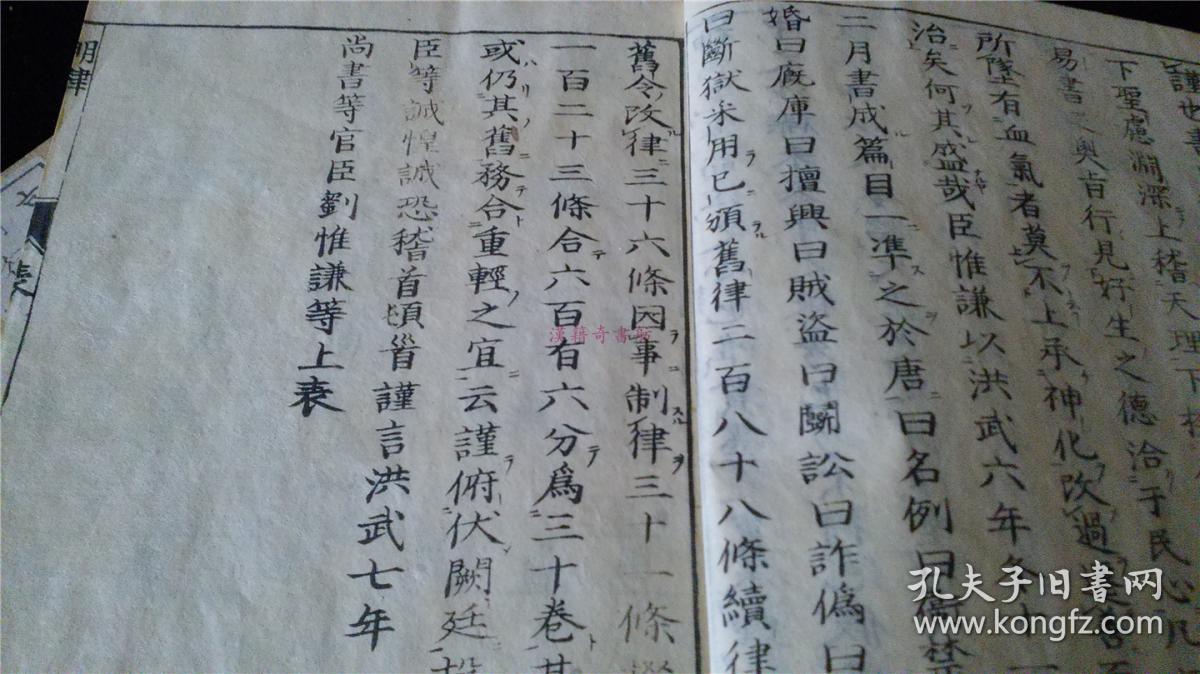 謹世
下聖慮淵深上稽天理下
易書之奧旨行見好生之德洽于民心凡
所墜有血氣者莫不上承神化改過
治矣何其盛哉臣惟謙以洪武六年冬十一
二月書成篇目一準之於唐曰名例曰衞禁
婚曰廐庫曰擅興曰賊盜曰鬭訟曰詐僞曰
曰斷獄采用已頒舊律二百八十八條續律
舊令改律三十六條因事制律三十一條
一百二十三條合六百有六分爲三十卷其
或仍其舊務合重輕之宜云謹俯伏闕廷投
臣等誠惶誠恐稽首頓首謹言洪武七年
尚書等官臣劉惟謙等上表
明律
表
漢籍奇書
孔夫子旧书网
www.kongfz.com